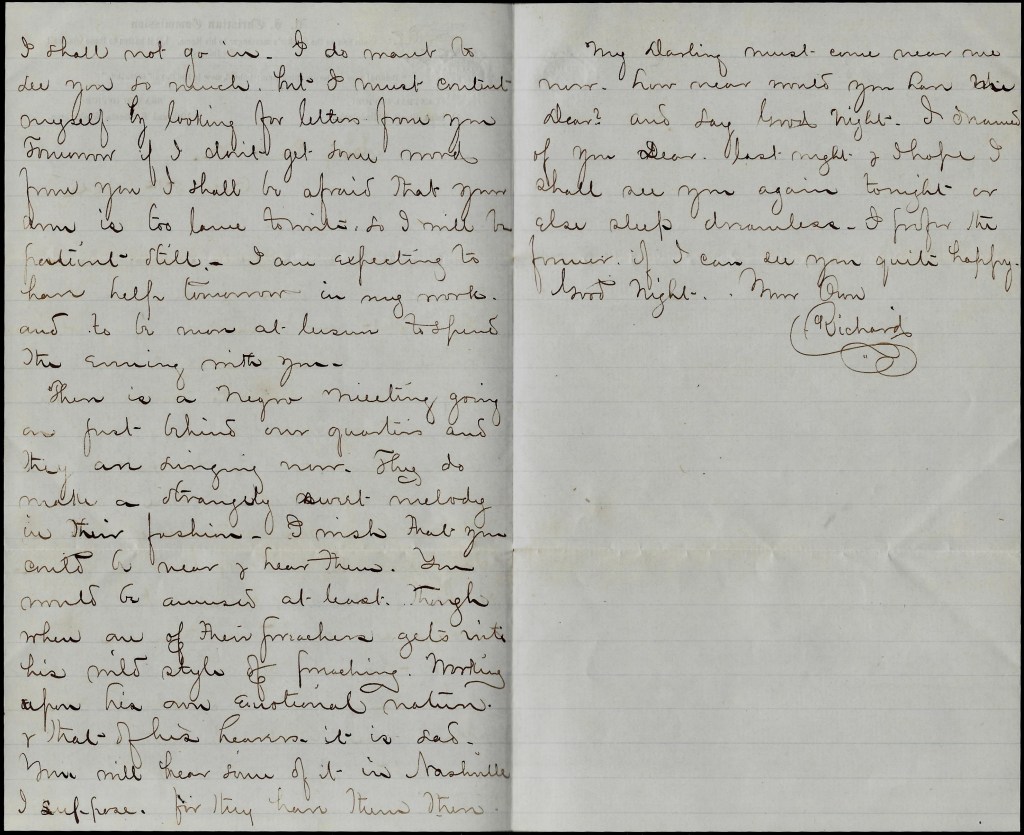 I shall not go in. I do want to
see you so much. but I must content
myself by looking for letters from you
Tomorrow if I don't get some word
from you I shall be afraid that your
arm is too lame to write. so I will be
patient still. - I am expecting to
have help tomorrow in my work.
and to be more at leisure to spend
the evening with you -
There is a Negro meeting going
on just behind our quarters and
they are singing now. They do
make a strangely sweet melody
in their fashion - I wish that you
could be near & hear them. You
would be amused at least. Though
when one of their preachers gets into
his wild style of preaching. Working
upon his own emotional nature.
& that of his hearers it is sad.
You will hear some of it in Nashville
I suppose. for they have them there.
My Darling must come near me
now. how near would you have
Dear? and say Good Night. I dreamed
of you Dear. last night & I hope I
shall see you again tonight or
else sleep dreamless - I prefer the
former. if I can see you quite happy.
Good Night. Your Own
Richard